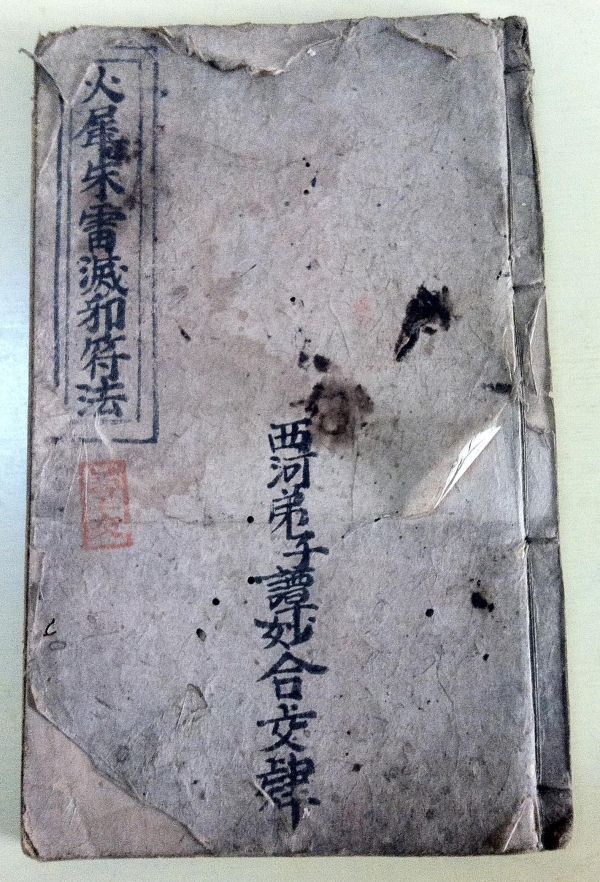 火犀朱雷滅邪符法
西河弟子譚妙合肄